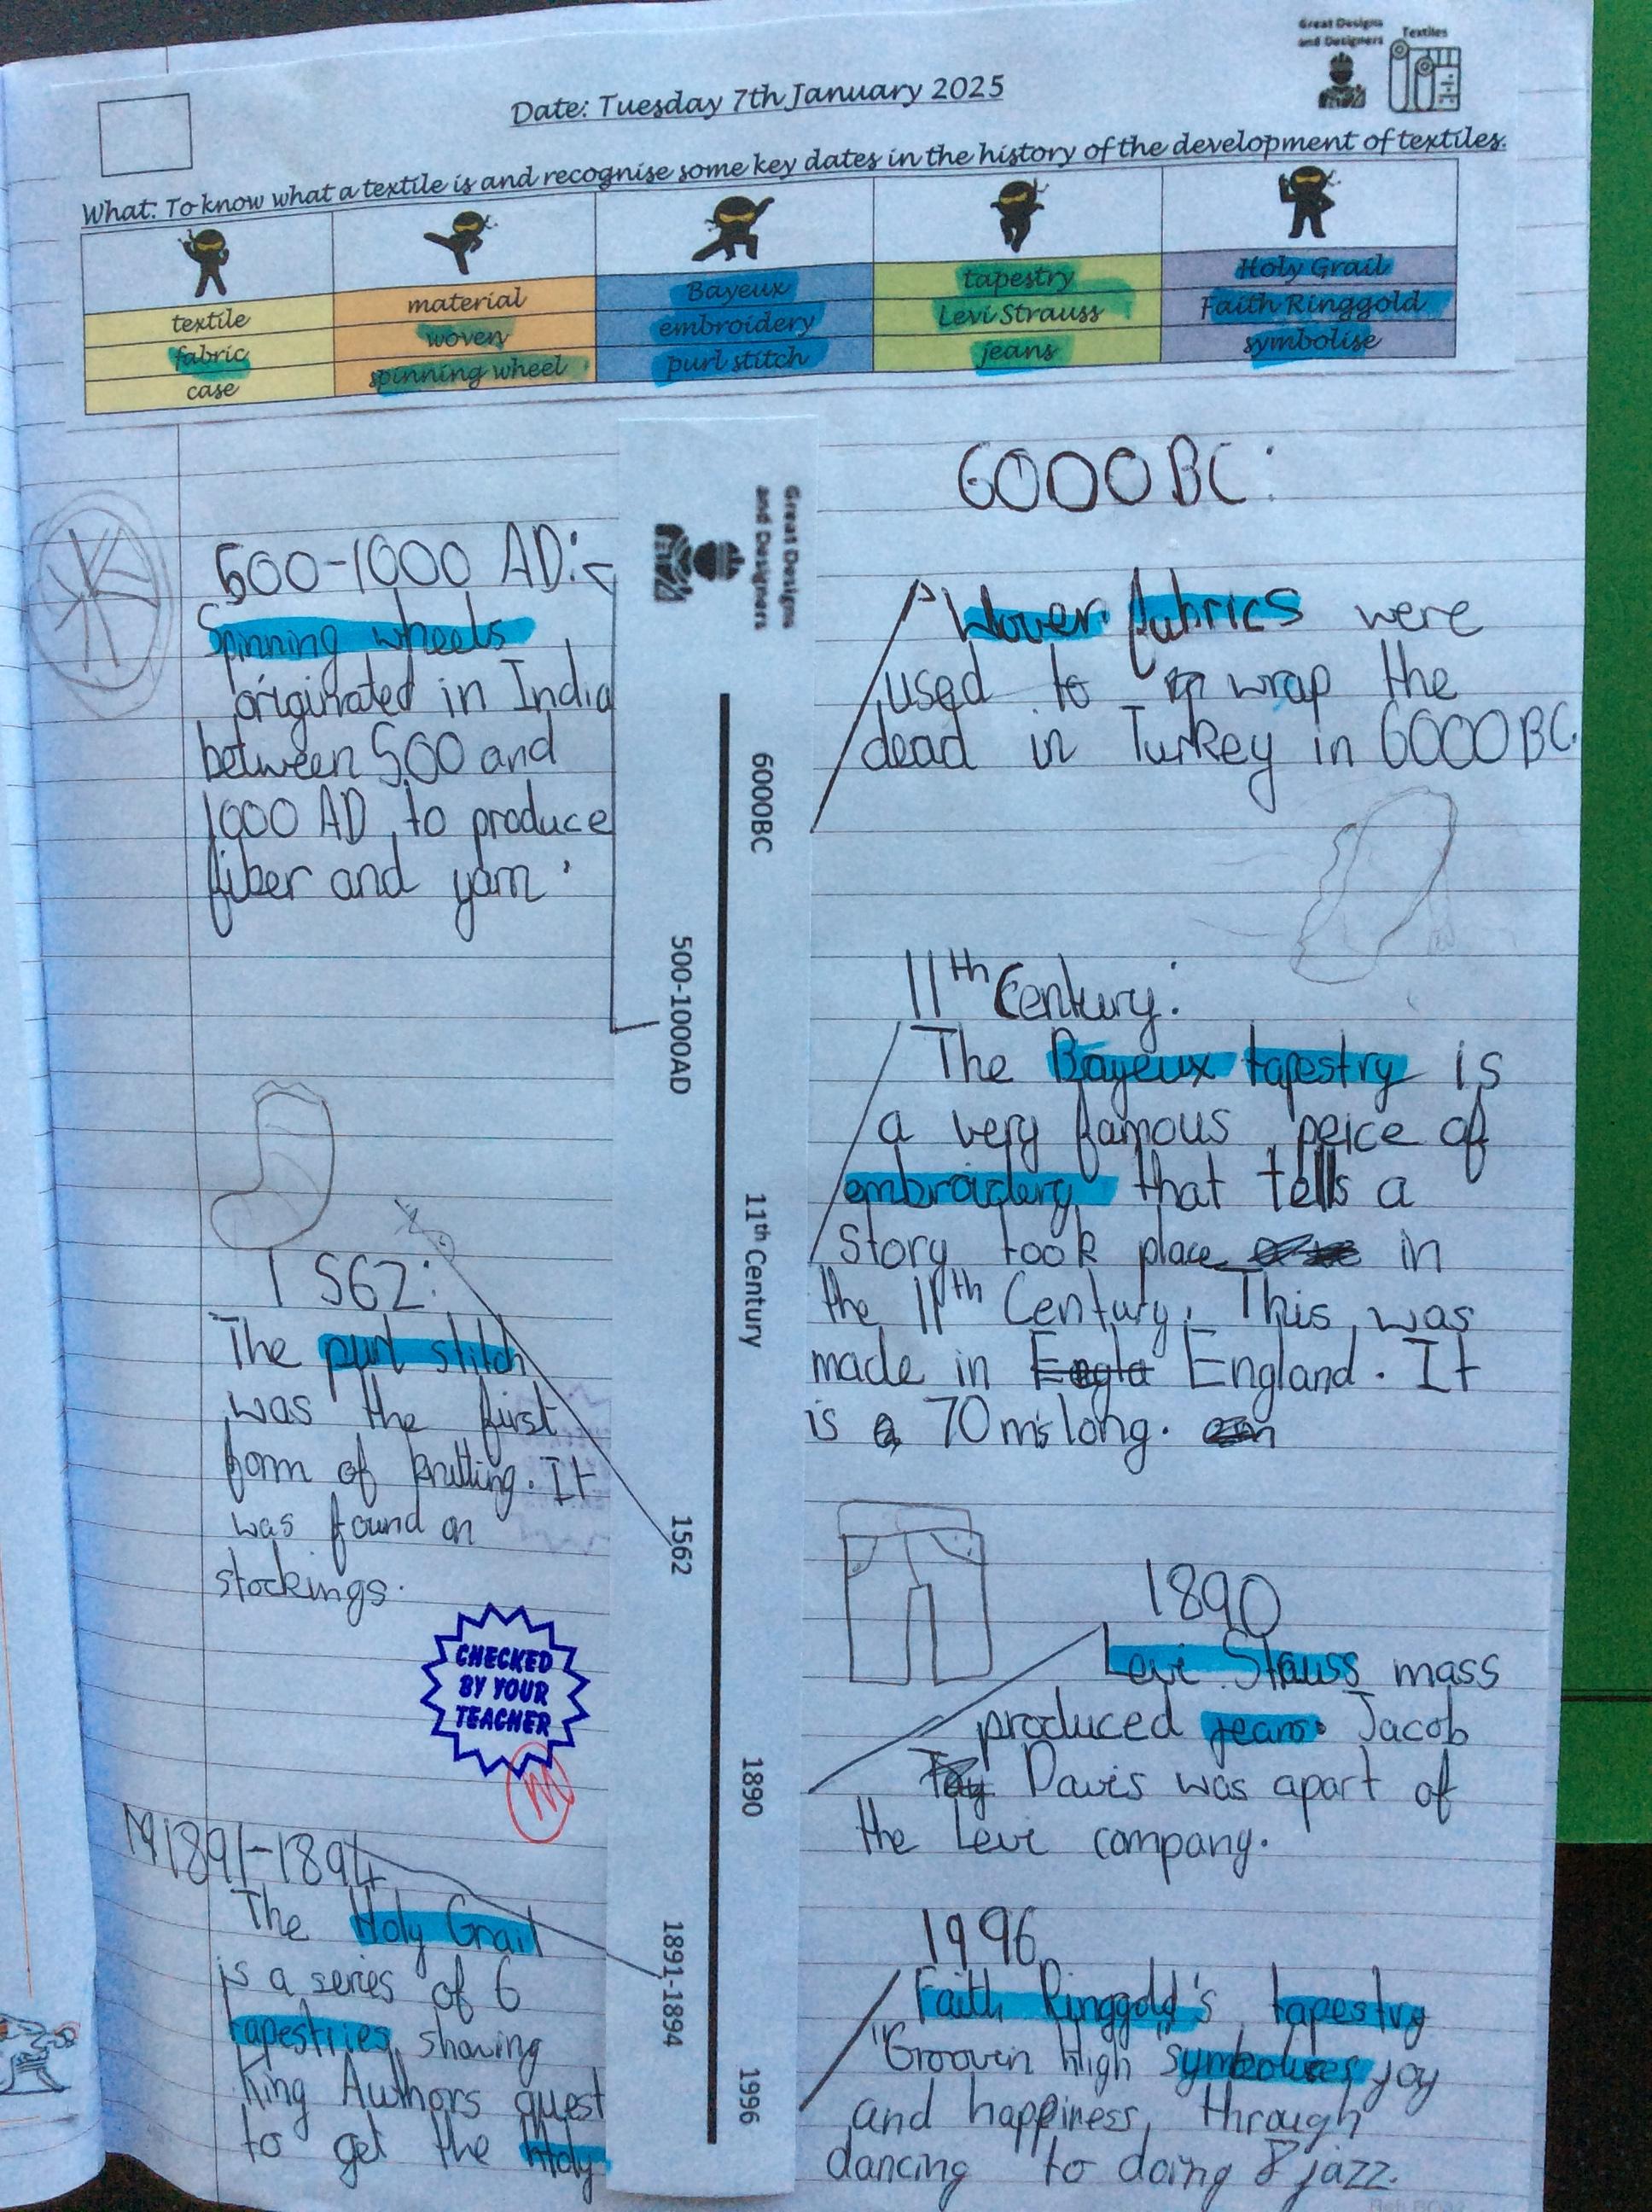 Great Designs
and Designers
Textiles
Date: Tuesday 7th January 2025
What: To know what a textile is and recognise some key dates in the history of the development of textiles.
textile
fabric
case
material
woven
spinning wheel
Bayeux
embroidery
purl stitch
tapestry
Levi Strauss
jeans
Holy Grail
Faith Ringgold
symbolise
Great Designs
and Designers
6000BC
500-1000AD
11th Century
1562
1890
1891-1894
1996
6000BC:
Woven fabrics were
used to wrap the
dead in Turkey in 6000BC.
500-1000 AD:
Spinning wheels
originated in India
between 500 and
1000 AD to produce
fiber and yarn.
11th Century:
The Bayeux tapestry is
a very famous peice of
embroidery that tells a
story took place in
the 11th Century. This was
made in England. It
is a 70m's long.
1562:
The purl stitch
was the first
form of knitting. It
was found on
stockings.
CHECKED
BY YOUR
TEACHER
M
1890
Levi Stauss mass
produced jeans. Jacob
Davis was apart of
the Levi company.
1891-1894
The Holy Grail
is a series of 6
tapestries showing
King Authors quest
to get the Holy
1996
Faith Ringgold's tapestry
"Groovin High" symbolises joy
and happiness through
dancing to doing jazz.